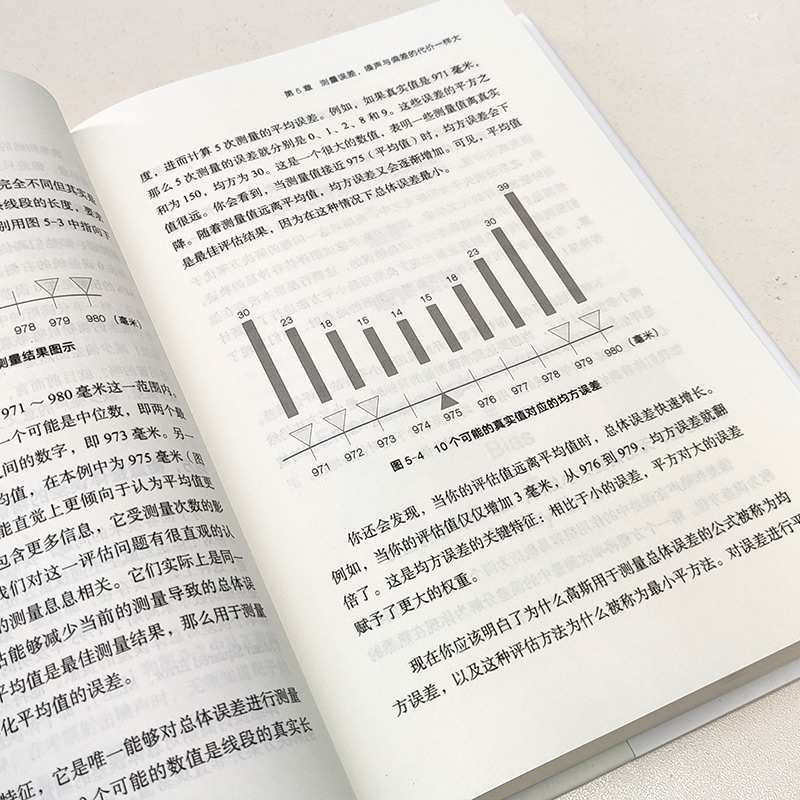 完全不同但真实是
条线段的长度，要求
别用图 5-3 中指向下
978 979 980 （毫米）
测量结果图示
971～980 毫米这一范围内。
一个可能是中位数，即两个最
之间的数字，即 973 毫米。另一
均值，在本例中为 975 毫米（图
能直觉上更倾向于认为平均值更
包含更多信息，它受测量次数的影
我们对这一评估问题有很直观的认
的测量息息相关。它们实际上是同一
估能够减少当前的测量导致的总体误
平均值是最佳测量结果，那么用于测量
化平均值的误差。
特征，它是唯一能够对总体误差进行测量
个可能的数值是线段的真实长
第 5 章 测量误差，噪声与偏差的代价一样大
度，进而计算 5 次测量的平均误差。例如，如果真实值是 971 毫米，
那么 5 次测量的误差就分别是 0、1、2、8 和 9。这些误差的平方之
和为 150，均方为 30。这是一个很大的数值，表明一些测量值离真实
值很远。你会看到，当测量值接近 975（平均值）时，均方误差会下
降。随着测量值远离平均值，均方误差又会逐渐增加。可见，平均值
是最佳评估结果，因为在这种情况下总体误差最小。
30 23 18 15 14 15 18 23 30 39
971 972 973 974 975 976 977 978 979 980 （毫米）
图 5-4 10 个可能的真实值对应的均方误差
你还会发现，当你的评估值远离平均值时，总体误差快速增长。
例如，当你的评估值仅仅增加 3 毫米，从 976 到 979，均方误差就翻
倍了。这是均方误差的关键特征：相比于小的误差，平方对大的误差
赋予了更大的权重。
现在你应该明白了为什么高斯用于测量总体误差的公式被称为均
方误差，以及这种评估方法为什么被称为最小平方法。对误差进行平